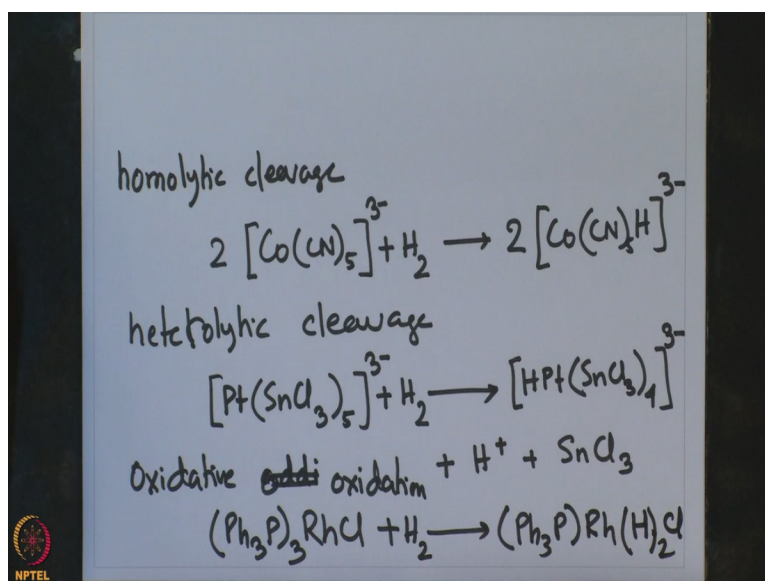 homolytic cleavage
2 [Co(CN)5]3- + H2 → 2 [Co(CN)5H]3-
heterolytic cleavage
[Pt(SnCl3)5]3- + H2 → [HPt(SnCl3)4]3-
+ H+ + SnCl3
Oxidative oxidation
(Ph3P)3RhCl + H2 → (Ph3P)Rh(H)2Cl
NPTEL